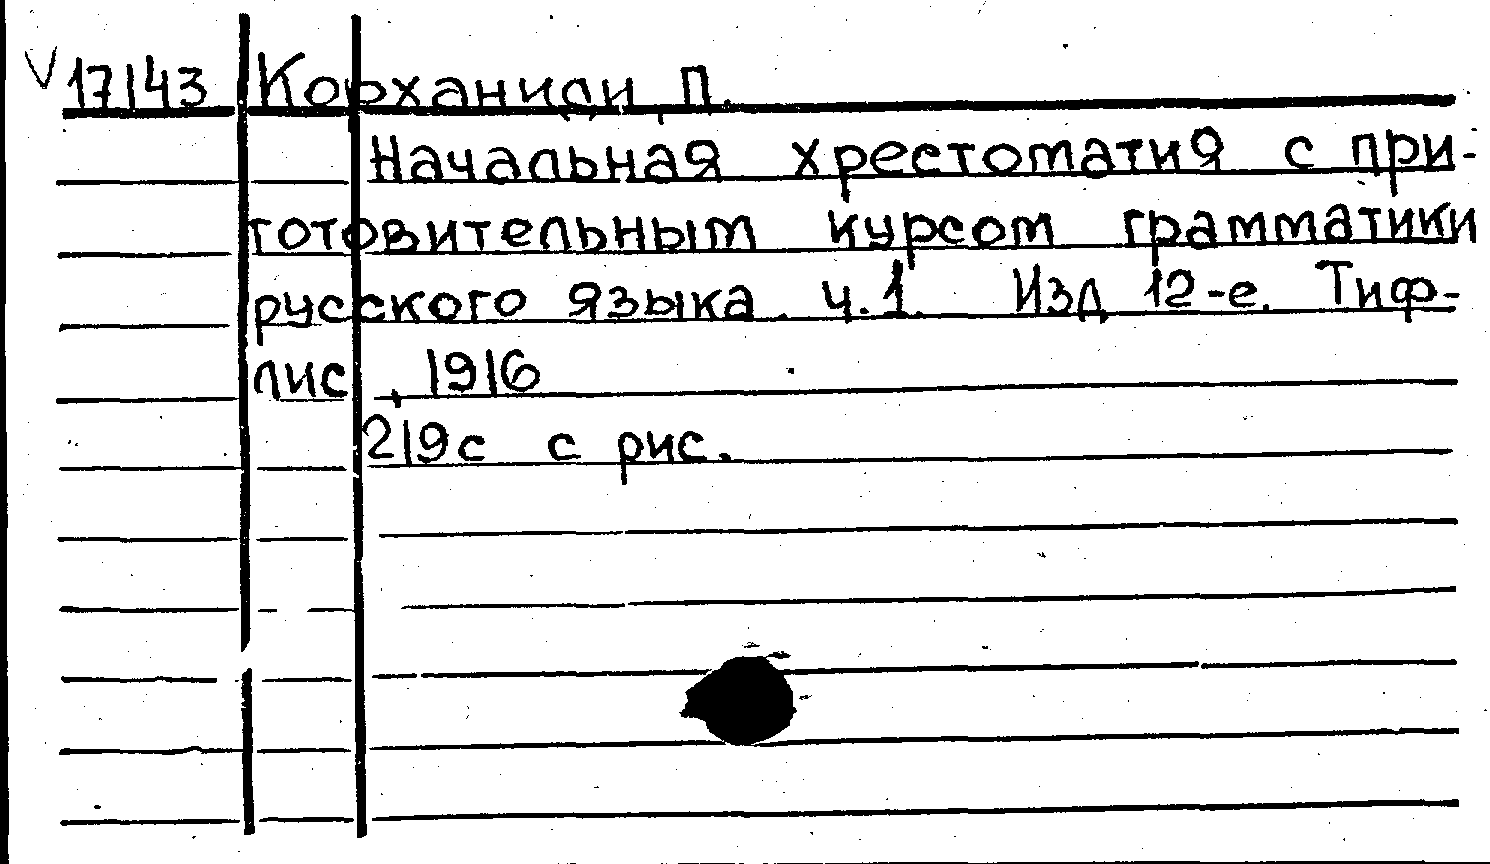 V 17143 Корханиди П.
Начальная хрестоматия с при-
готовительным курсом грамматики
русского языка. ч.1. Изд 12-е. Тиф-
лис, 1916
219с с рис.